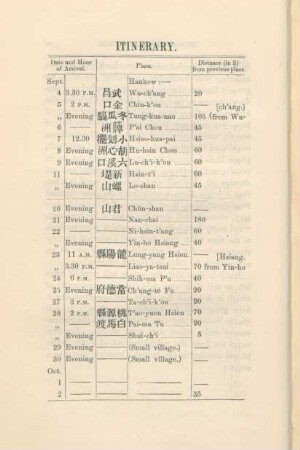 ITINERARY.
Date and Hour of Arrival. Place. Distance (in li) from previous place.
Sept. Hankow :—
4 3.30 P.M. 武昌 Wu-ch'ang 20
5 2 P.M. 金口 Chin-k'ou — [ch'ang.)
„ Evening 冬瓜 Tung-kua-nau 105 (from Wu-
6 — P'ai Chou 45
7 12.30 小 Hsiao-hua-pai 45
8 Evening 胡心洲 Hu-hsin Chou 60
9 Evening 六溪口 Lu-ch'i-k'ou 60
11 — 新堤 Hsin-t'i 60
„ Evening 螺山 Lo-shan 45
20 Evening 君山 Chün-shan —
21 Evening Nan-chai 180
22 — Ni-hsin-t'ang 60
„ Evening Yin-ho Hsiang 40
23 11 A.M. 龍陽縣 Lung-yang Hsien — [Hsiang.
„ 3.30 P.M. Liao-ya-tsui 70 from Yin-ho
24 6 P.M. Shih-ma P'u 40
25 Evening 常德府 Ch'ang-tê Fu 20
27 3 P.M. Ta-ch'i-k'ou 20
28 2 P.M. 桃源縣 T'ao-yuen Hsien 70
„ — 白馬渡 Pai-ma Tu 20
„ Evening Shui-ch'i 5
29 Evening (Small village.) —
30 Evening (Small village.) —
Oct.
1 — — —
2 — — 35